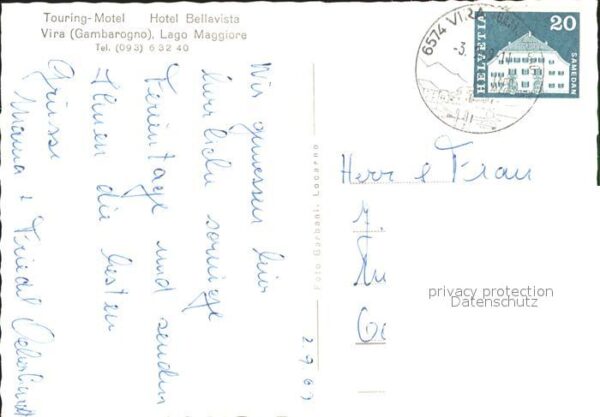 Touring-Motel Hotel Bellavista
Vira (Gambarogno), Lago Maggiore
Tel. (093) 6 32 40
Wir geniessen hier
herrliche sonnige
Ferientage und senden
Ihnen die besten
Grüsse
Mama + Friedel
2.9.69
Foto Garbani, Locarno
6574 VIRA
HELVETIA
20
SAMEDAN
Herr & Frau
privacy protection
Datenschutz